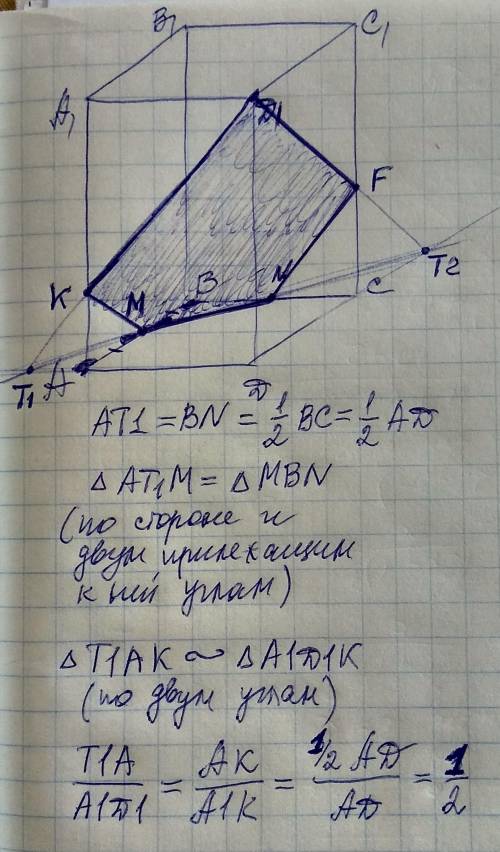 B1
C1
A1
D1
F
K
M
B
N
C
T2
T1
A
D
AT1 = BN = 1/2 BC = 1/2 AD
△ AT1M = △ MBN
(по стороне и
двум прилежащим
к ней углам)
△ T1AK ~ △ A1D1K
(по двум углам)
T1A/A1D1 = AK/A1K = 1/2 AD/AD = 1/2